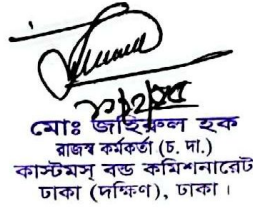 মোঃ জহিরুল হক
রাজস্ব কর্মকর্তা (চ. দা.)
কাস্টমস্ বন্ড কমিশনারেট
ঢাকা (দক্ষিণ), ঢাকা।